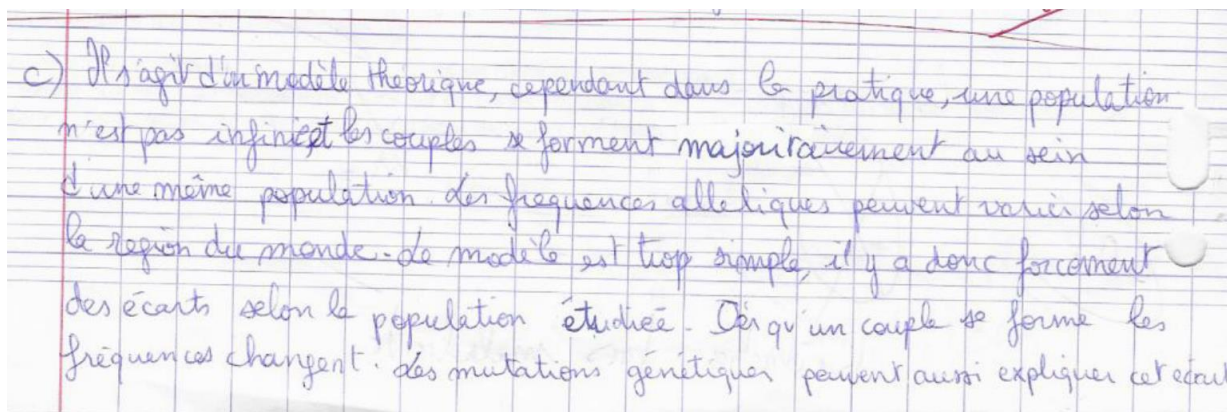 c) Il s'agit d'un modèle théorique, cependant dans la pratique, une population
n'est pas infinie et les couples se forment majoritairement au sein
d'une même population. Les fréquences alléliques peuvent varier selon
la région du monde. Le modèle est trop simple, il y a donc forcement
des écarts selon la population étudiée. Dès qu'un couple se forme les
fréquences changent. Les mutations génétiques peuvent aussi expliquer cet écart